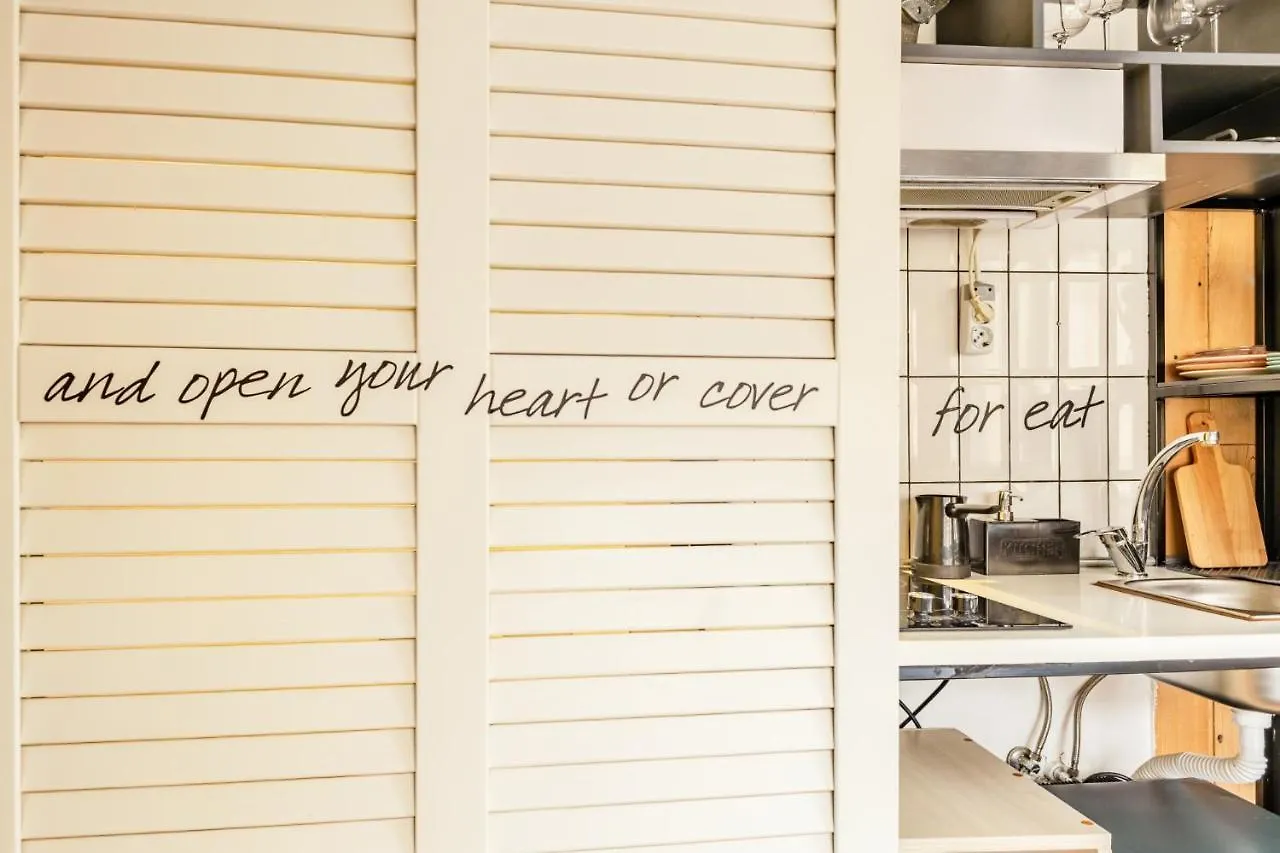 and open your heart or cover for eat
KITCHEN